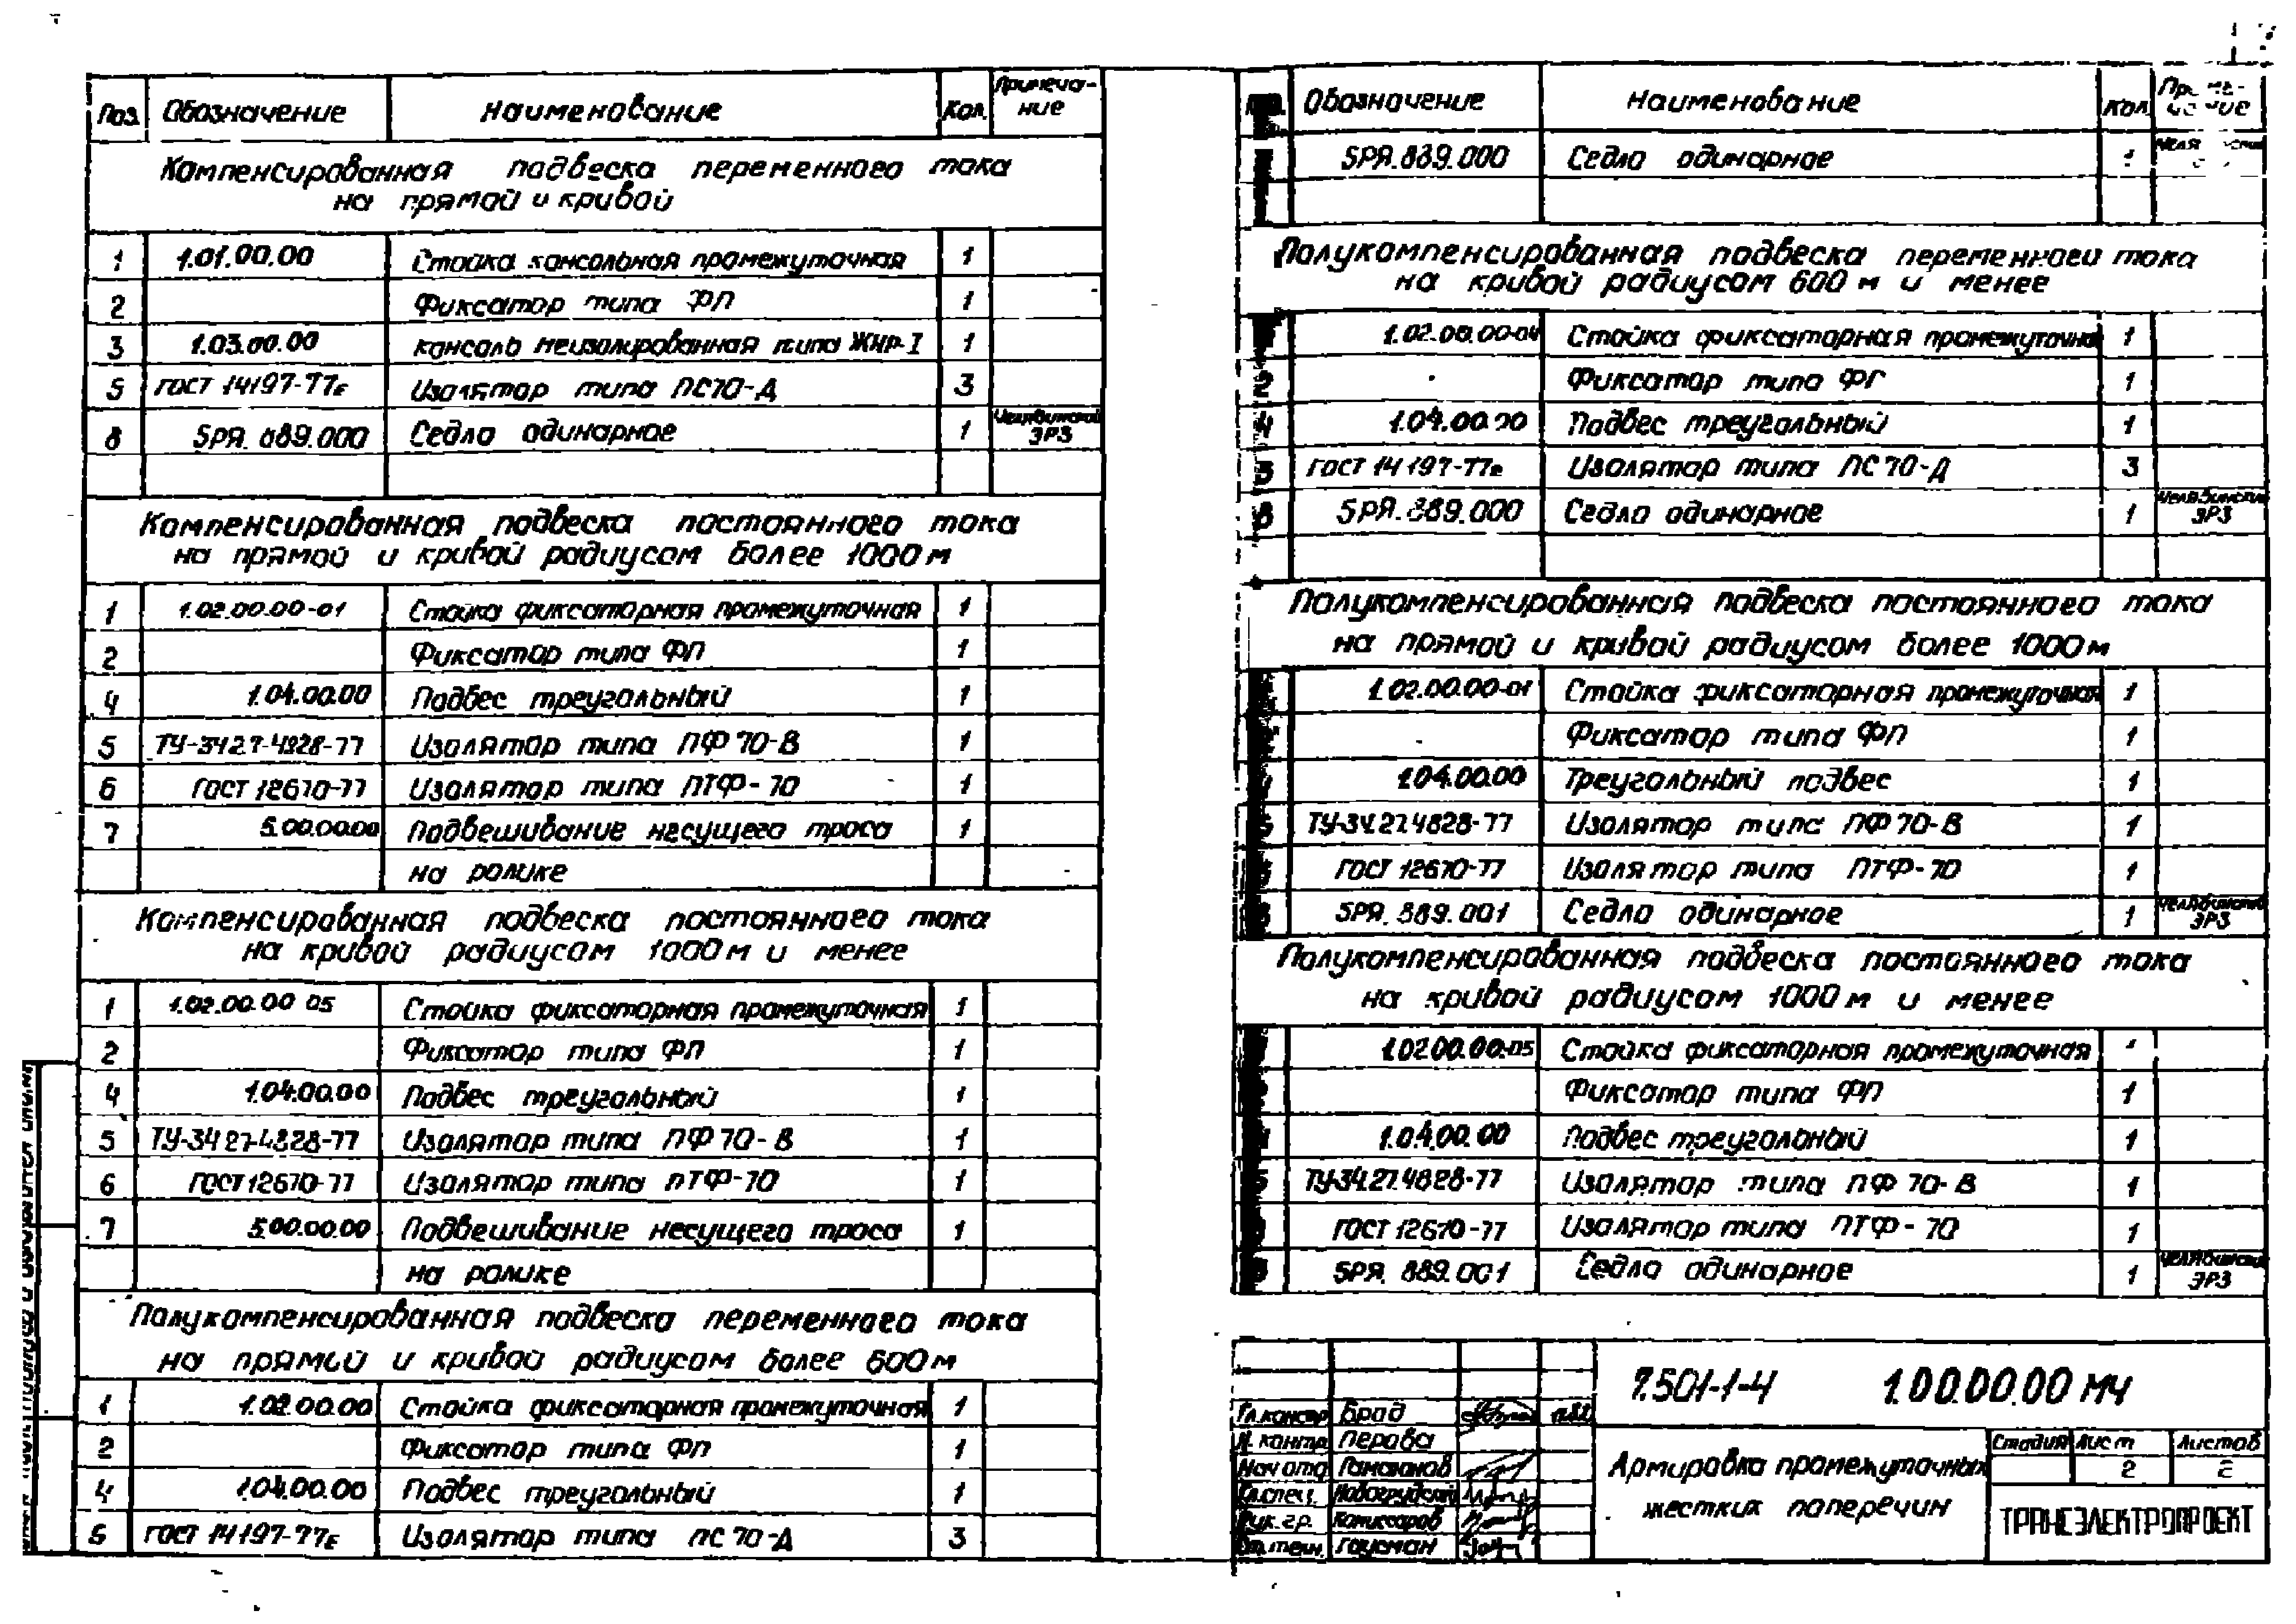 Поз. Обозначение Наименование Кол. Примеча-
ние
Компенсированная подвеска переменного тока
на прямой и кривой
1 1.01.00.00 Стойка консольная промежуточная 1
2 Фиксатор типа ФП 1
3 1.03.00.00 Консоль неизолированная типа ЖНР-I 1
5 ГОСТ 14197-77Е Изолятор типа ПС70-Д 3
8 5РЯ.889.000 Седло одинарное 1 Челябинский
ЭРЗ
Компенсированная подвеска постоянного тока
на прямой и кривой радиусом более 1000 м
1 1.02.00.00-01 Стойка фиксаторная промежуточная 1
2 Фиксатор типа ФП 1
4 1.04.00.00 Подвес треугольный 1
5 ТУ-34 27-4828-77 Изолятор типа ПФ 70-В 1
6 ГОСТ 12670-77 Изолятор типа ПТФ-70 1
7 5.00.00.00 Подвешивание несущего троса 1
на ролике
Компенсированная подвеска постоянного тока
на кривой радиусом 1000 м и менее
1 1.02.00.00 05 Стойка фиксаторная промежуточная 1
2 Фиксатор типа ФП 1
4 1.04.00.00 Подвес треугольный 1
5 ТУ-34 27-4828-77 Изолятор типа ПФ 70-В 1
6 ГОСТ 12670-77 Изолятор типа ПТФ-70 1
7 5.00.00.00 Подвешивание несущего троса 1
на ролике
Полукомпенсированная подвеска переменного тока
на прямой и кривой радиусом более 600 м
1 1.02.00.00 Стойка фиксаторная промежуточная 1
2 Фиксатор типа ФП 1
4 1.04.00.00 Подвес треугольный 1
5 ГОСТ 14197-77Е Изолятор типа ПС 70-Д 3
Обозначение Наименование Кол.
5РЯ.889.000 Седло одинарное 1
Полукомпенсированная подвеска переменного тока
на кривой радиусом 600 м и менее
1.02.00.00-04 Стойка фиксаторная промежуточная 1
Фиксатор типа ФГ 1
4 1.04.00.00 Подвес треугольный 1
5 ГОСТ 14197-77е Изолятор типа ПС 70-Д 3
8 5РЯ.889.000 Седло одинарное 1 Челябинский
ЭРЗ
Полукомпенсированная подвеска постоянного тока
на прямой и кривой радиусом более 1000 м
1.02.00.00-01 Стойка фиксаторная промежуточная 1
Фиксатор типа ФП 1
1.04.00.00 Треугольный подвес 1
5 ТУ-34.27.4828-77 Изолятор типа ПФ 70-В 1
ГОСТ 12670-77 Изолятор типа ПТФ-70 1
5РЯ.889.001 Седло одинарное 1 Челябинский
ЭРЗ
Полукомпенсированная подвеска постоянного тока
на кривой радиусом 1000 м и менее
1.02.00.00-05 Стойка фиксаторная промежуточная
Фиксатор типа ФП 1
1.04.00.00 Подвес треугольный 1
5 ТУ-34.27.4828-77 Изолятор типа ПФ 70-В 1
ГОСТ 12670-77 Изолятор типа ПТФ-70 1
5РЯ.889.001 Седло одинарное 1 Челябинский
ЭРЗ
7.501-1-4 1.00.00.00 МЧ
Гл.констр Брад
Н. контр Перова
Нач отд
Гл.спец. Новогрудский
Рук.гр. Комиссаров
Ст.техн. Гаусман
Армировка промежуточных
жестких поперечин
Стадия Лист Листов
2 2
ТРАНСЭЛЕКТРОПРОЕКТ